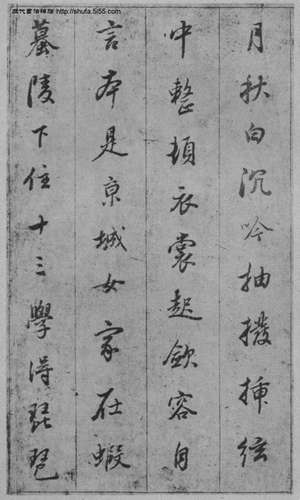 http://shufa.5i55.com
月秋白沉吟抽撥插絃
中整頓衣裳起歛容自
言本是京城女家在蝦
蟇陵下住十三學得琵琶